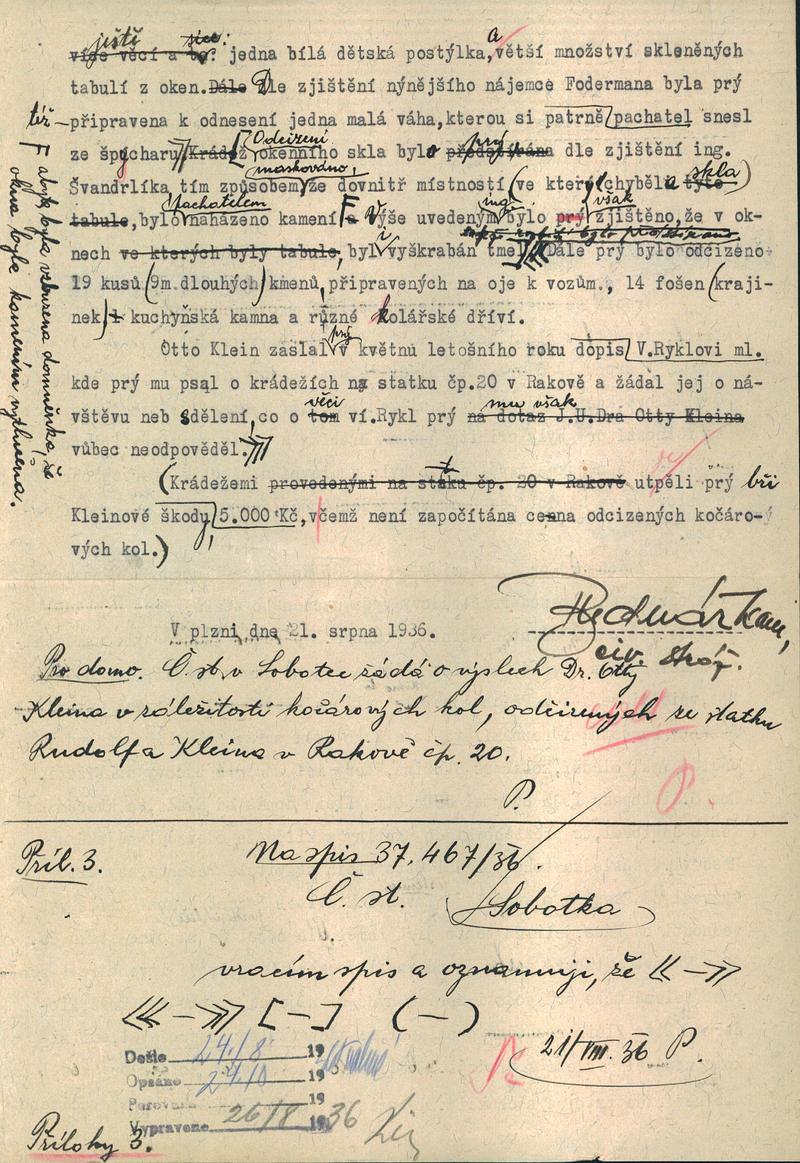 ještě
více věcí a to: jedna bílá dětská postýlka, a větší množství skleněných
tabulí z oken. Dále Dle zjištění nýnějšího nájemce Fodermana byla prý
též připravena k odnesení jedna malá váha, kterou si patrně pachatel snesl
ze špýcharu Krádež Odcizení okenního skla bylo předstírána prý dle zjištění ing.
Švandrlíka, maskováno, tím způsobem že dovnitř místností (ve kterých chyběla tyto skla)
tabule, pachatelem bylo naházeno kamení Výše uvedeným ing. bylo prý však zjištěno, že v ok-
nech ve kterých byly tabule, byl i vyškrabán tmel Dále prý bylo odcizeno
19 kusů (9m. dlouhých) kmenů, připravených na oje k vozům., 14 fošen (kraji-
nek) + kuchyňská kamna a různé kolářské dříví.
Otto Klein zaslal prý v květnu letošního roku dopis V.Ryklovi ml.
kde prý mu psal o krádežích na statku čp.20 v Rakově a žádal jej o ná-
vštěvu neb sdělení, co o tom věci ví. Rykl prý na dotaz J.U.Dra Otty Kleina mu však
vůbec neodpověděl.
(Krádežemi provedenými na statku čp. 20 v Rakově utpěli prý bři
Kleinové škody 5.000 Kč, včemž není započítána cena odcizených kočáro-
vých kol.)
F aby byla vzbuzena domněnka, že
okna byla kamením vytlučena.
V plzni, dne 21. srpna 1936.
Pro domo. Č. st. v Sobotce žádá o výslech Dr. Otty
Kleina v záležitosti kočárových kol, odcizených ze statku
Rudolfa Kleina v Rakově čp. 20.
P.
Příl. 3.
Na spis 37.467/36.
Č. st.
Sobotka
vracím spis a oznamuji, že << — >>
<<< — >>> [ — ] ( — )
21/VIII. 36 P.
Došlo 24./8 19
Opsáno 19
Porovnáno 19
Vypraveno 26/8 1936
Přílohy 3.